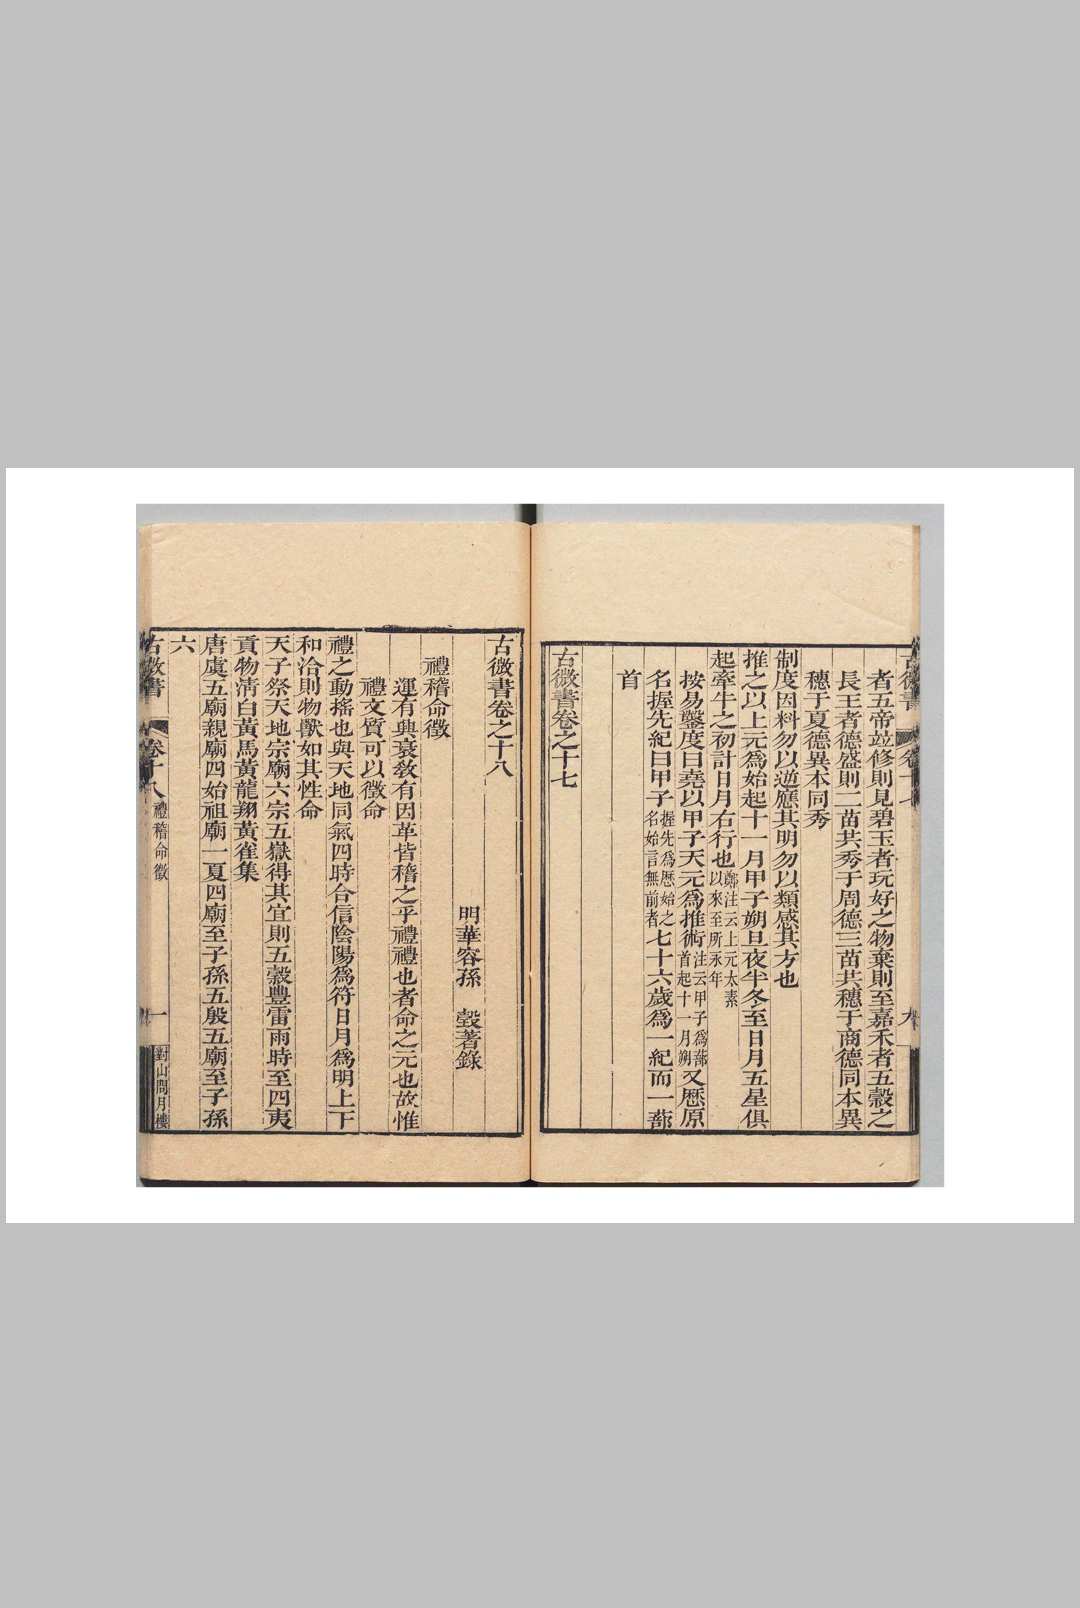 者五帝竝修則見碧玉者玩好之物棄則至嘉禾者五穀之
長王者德盛則二苗共秀于周德三苗共穗于商德同本異
穗于夏德異本同秀
制度因料勿以逆應其明勿以類感其方也
推之以上元爲始起十一月甲子朔旦夜半冬至日月五星俱
起牽牛之初計日月右行也鄭注云上元太素以來至所求年
按易鑿度曰堯以甲子天元爲推術注云甲子爲蔀首起十一月朔又歷原
名握先紀日甲子握先爲歷始之名始言無前者七十六歲爲一紀而一蔀
首
古微書卷之十七
古微書卷之十八
明華容孫 瑴著錄
禮稽命徵
運有興衰教有因革皆稽之乎禮禮也者命之元也故惟
禮文質可以徵命
禮之動搖也與天地同氣四時合信陰陽爲符日月爲明上下
和洽則物獸如其性命
天子祭天地宗廟六宗五嶽得其宜則五穀豐雷雨時至四夷
貢物淸白黃馬黃龍翔黃雀集
唐虞五廟親廟四始祖廟一夏四廟至子孫五殷五廟至子孫
六
古微書 卷十八 禮稽命徵 一 對山問月樓